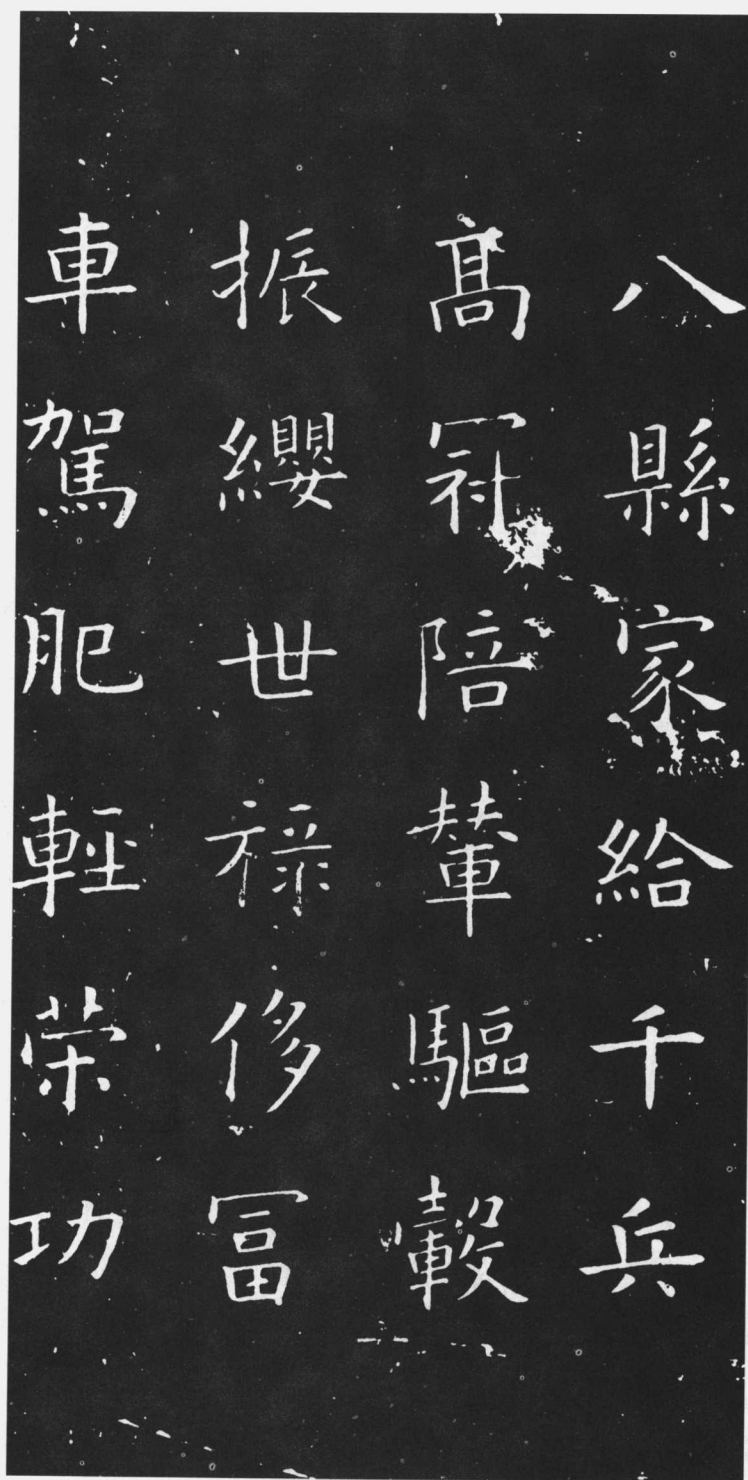 八縣家給千兵
髙冠陪輦驅轂
振纓世祿侈冨
車駕肥輕荣功